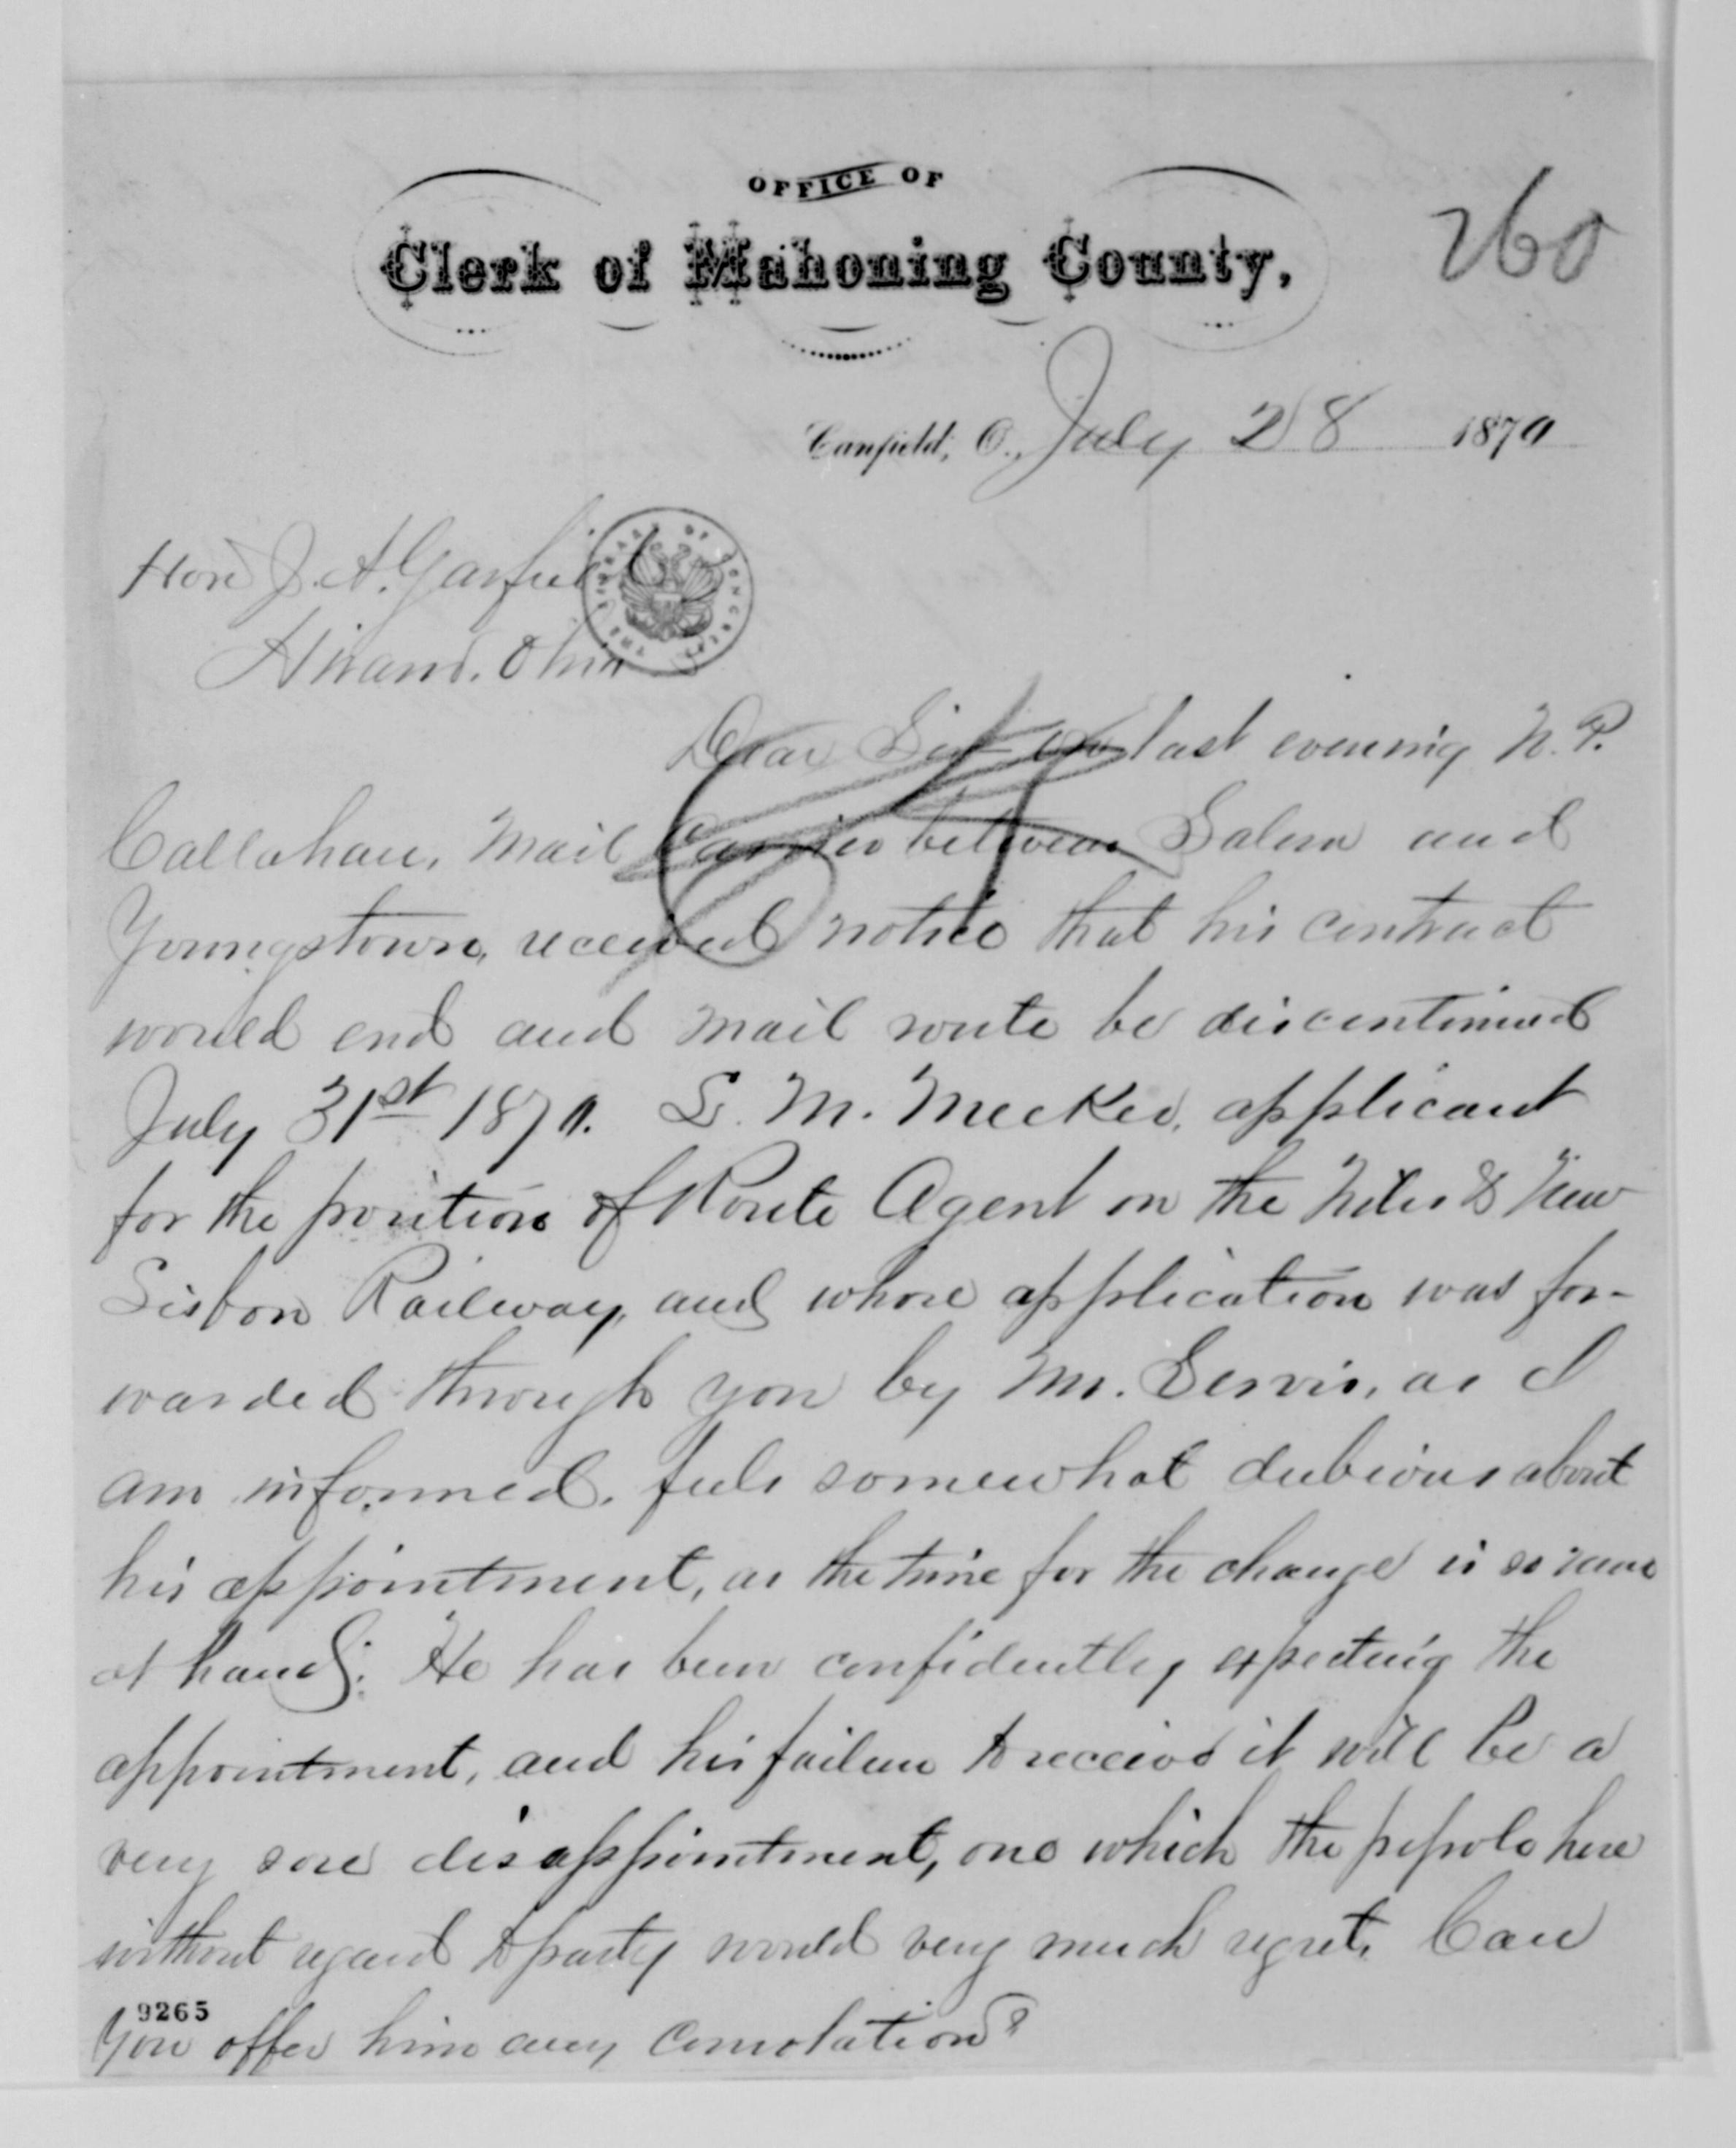 OFFICE OF
Clerk of Mahoning County,
260
Canfield, O., July 28 1870
Hon J. A. Garfield
Hiram, Ohio
THE LIBRARY OF CONGRESS
Dear Sir last evening N. P.
Callahan, Mail Carrier between Salem and
Youngstown, received notice that his contract
would end and mail route be discontinued
July 31st 1870. L. M. Meeker, applicant
for the position of Route Agent on the Niles & New
Lisbon Railway, and whose application was for-
warded through you by Mr. Servis, as I
am informed, feels somewhat dubious about
his appointment, as the time for the change is so near
at hand. He has been confidently expecting the
appointment, and his failure to receive it will be a
very sore disappointment, one which the people here
without regard to party would very much regret. Can
9265
you offer him any consolation?